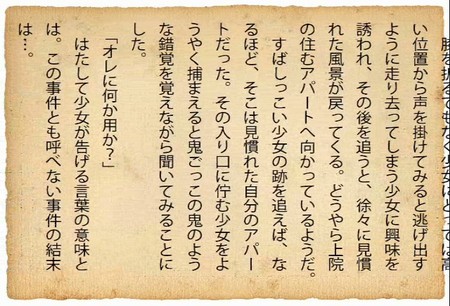 膝を折るでもなく少女にとっては高
い位置から声を掛けてみると逃げ出す
ように走り去ってしまう少女に興味を
誘われ、その後を追うと、徐々に見慣
れた風景が戻ってくる。どうやら上院
の住むアパートへ向かっているようだ。
　すばしっこい少女の跡を追えば、な
るほど、そこは見慣れた自分のアパー
トだった。その入り口に佇む少女をよ
うやく捕まえると鬼ごっこの鬼のよう
な錯覚を覚えながら聞いてみることに
した。
「オレに何か用か？」
　はたして少女が告げる言葉の意味と
は。この事件とも呼べない事件の結末
は…。